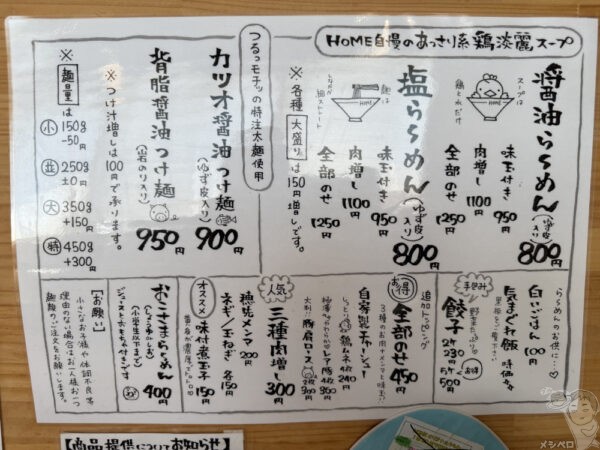 HOME自慢のあっさり系鶏淡麗スープ
醤油らぁめん(ゆず皮入り) 800円
スープは
鶏と水だけ
味玉付き 950円
肉増し 1100円
全部のせ 1250円
塩らぁめん(ゆず皮入り) 800円
麺は
細ストレート
味玉付き 950円
肉増し 1100円
全部のせ 1250円
※各種大盛りは150円増しです。
つるっモチッの特注太麺使用
カツオ醤油つけ麺(ゆず皮入り) 900円
背脂醤油つけ麺(岩のり入り) 950円
※つけ汁増しは100円で承ります。
※麺量は
小 150g -50円
並 250g ±0円
大 350g +150円
特 450g +300円
らぁめんのお供に…♡
白いごはん 100円
気まぐれ飯 時価
手包み
餃子
野菜たっぷり
2ケ 230円
5ケ 500円
お得
追加トッピング
お得
全部のせ 450円
自家製チャーシュー
しっとり 鶏ムネ 4枚 240円
レア豚 4枚 350円
大判! 豚肩ロース 2枚 300円
人気
三種肉増し 300円
穂先メンマ 200円
ネギ/玉ねぎ 各150円
オススメ
味付煮玉子 150円
おこさまらぁめん 400円
(しょうゆorしお)
(小学生以下まで)
ジュースとおもちゃ付きです
【お願い】
小さなお子様や体調不良等
理由のない場合はお一人様お一つ
麺類のご注文をお願いします。
【商品提供についてお知らせ】
メシペロ